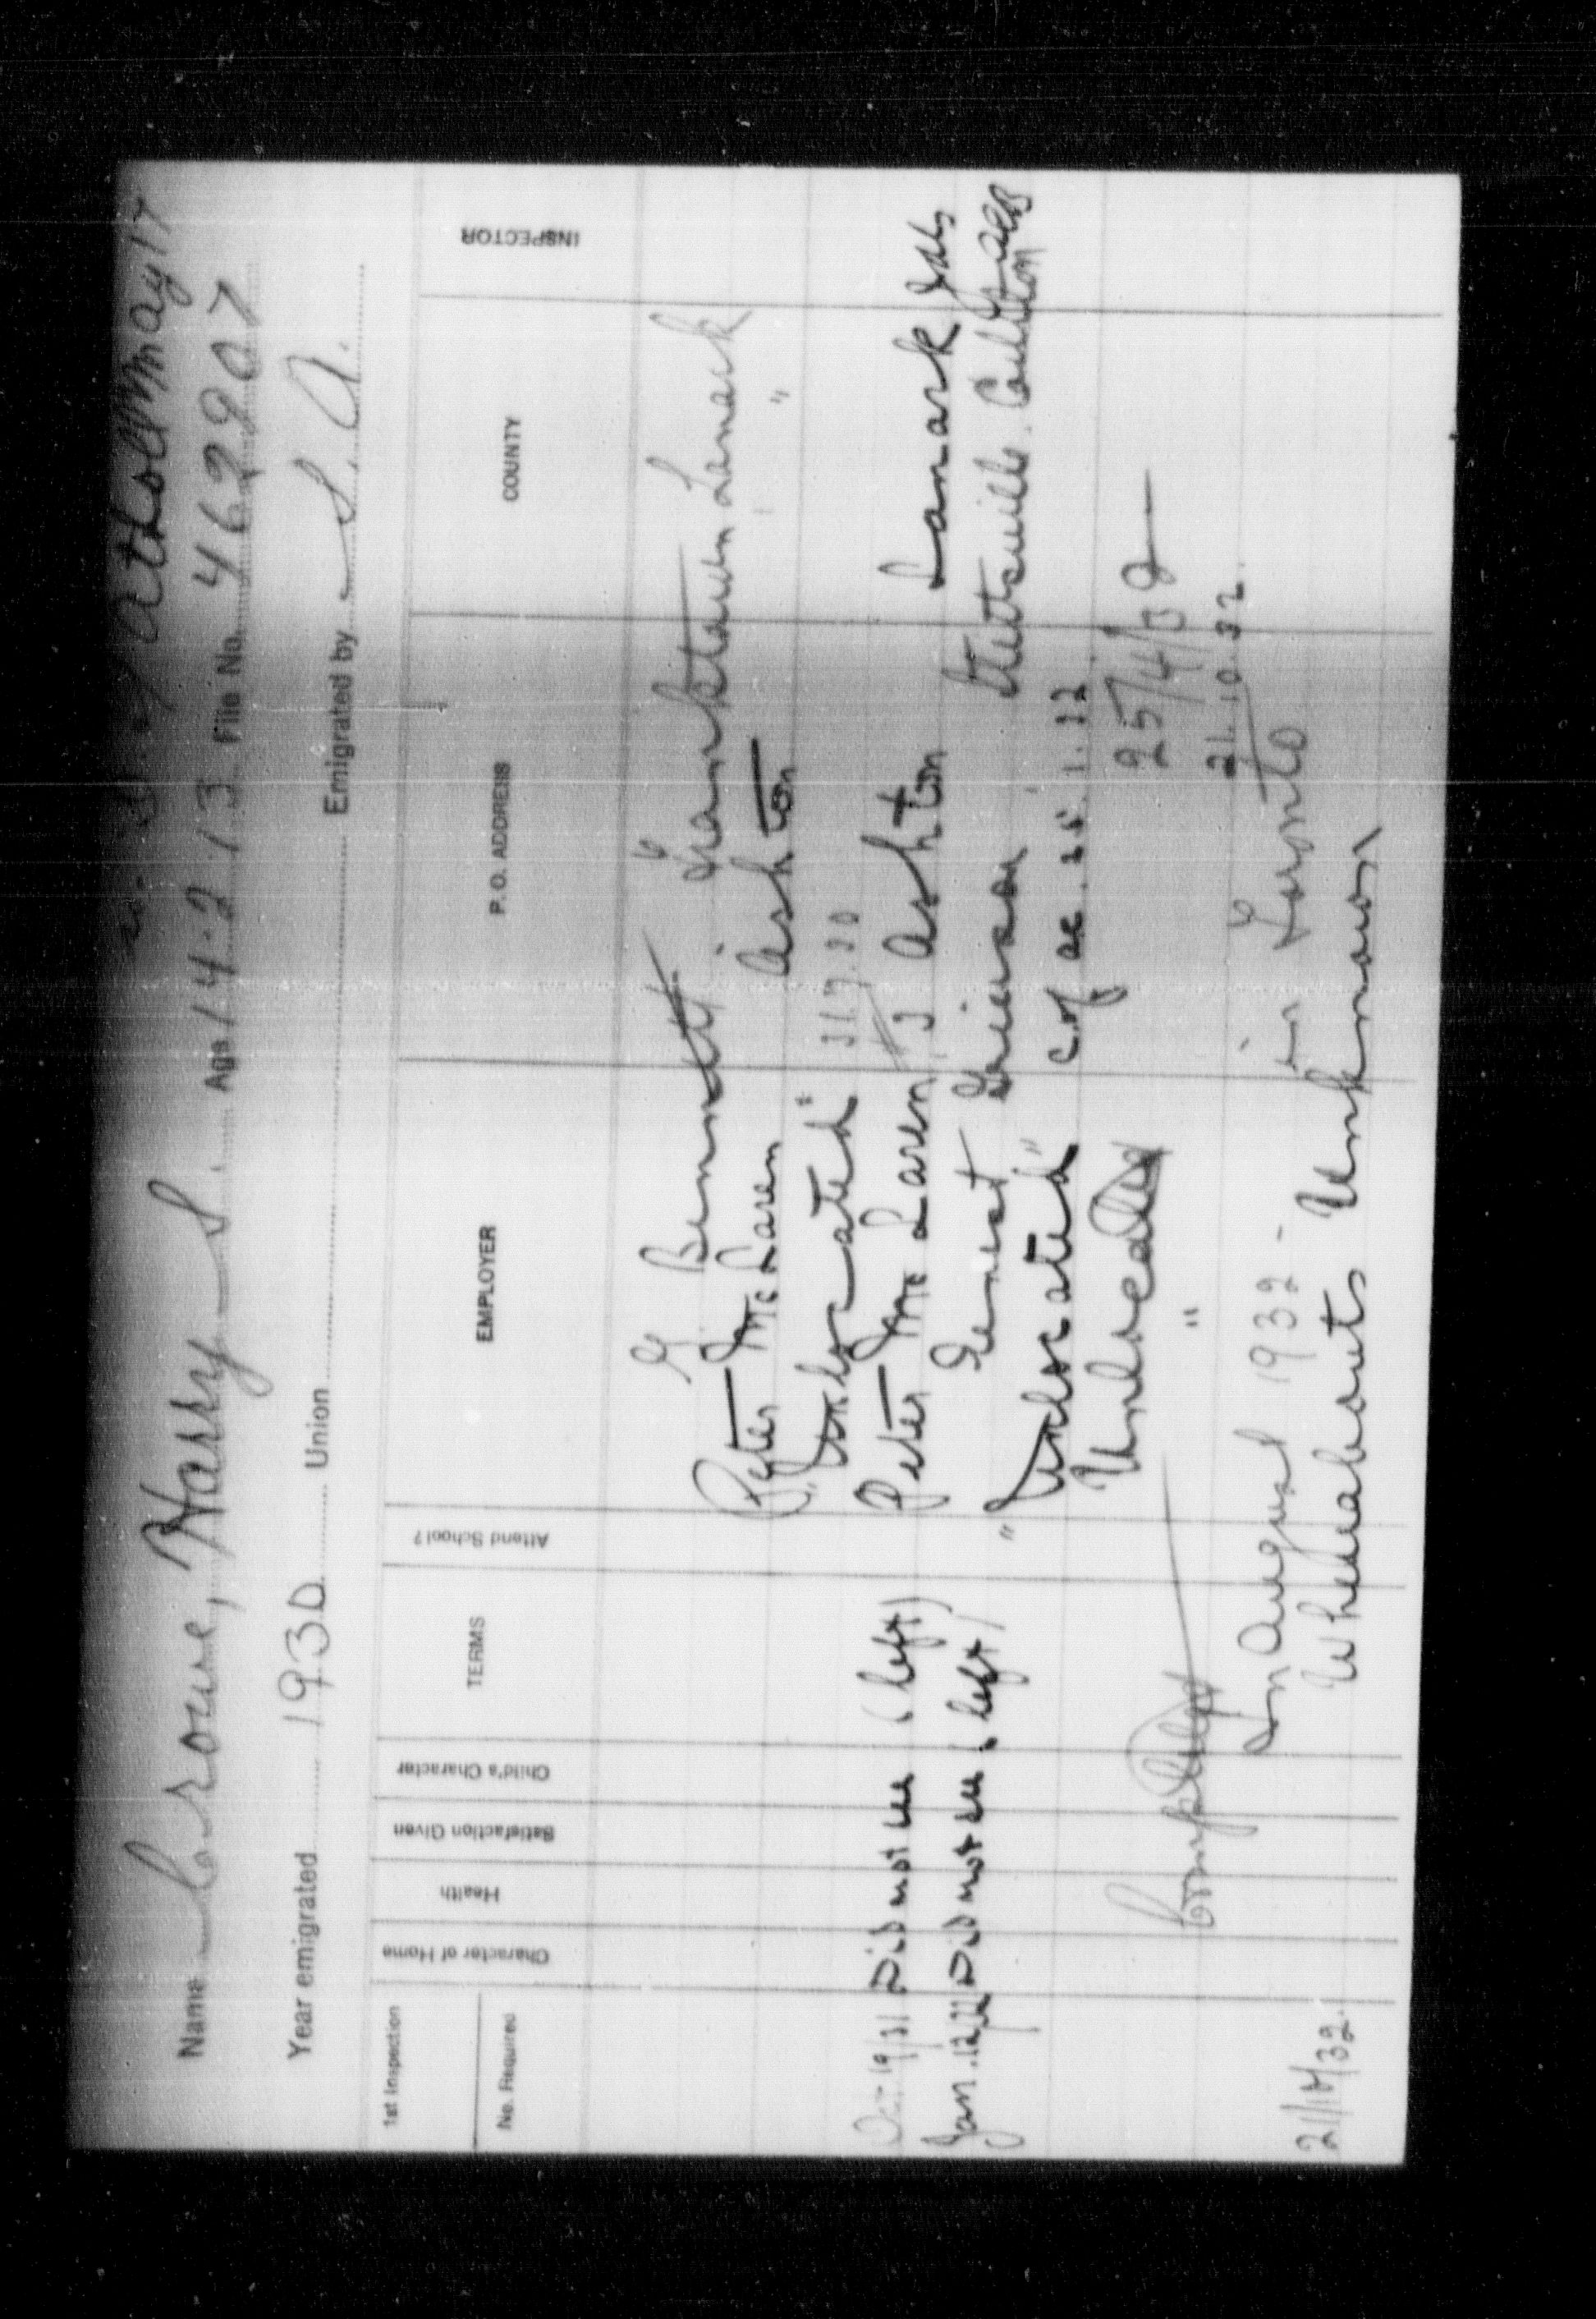 S.S. Athol May 17
Name Crowe, Harry S. Age 14.2.13 File No. 462907
Year emigrated 1930 Union Emigrated by S. A.
1st Inspection
No. Required
Character of Home
Health
Satisfaction Given
Child's Character
TERMS
Attend School?
EMPLOYER
P. O. ADDRESS
COUNTY
INSPECTOR
G Bennett Franktown Lanark
Peter McLaren Ashton "
"Unlocated" 31.7.30
Oct 19/31 Did not see (left) Peter McLaren, 3 Ashton Lanark
Jan. 12/32 Did not see (left) Ernest Grierson Stittsville Carleton
"Unlocated" c of ac. 25.1.32
Unlocated 25/4/32
Completed " 21.10.32
In August 1932 - in Toronto
21/10/32 Whereabouts Unknown